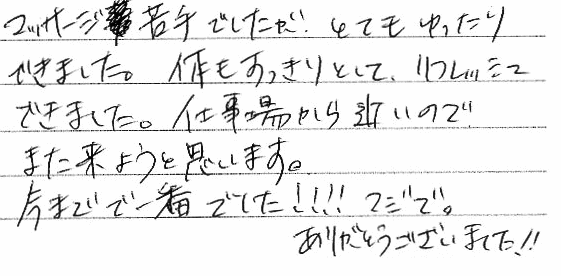 マッサージ苦手でしたが、とてもゆったり
できました。体もすっきりとして、リフレッシュ
できました。仕事場から近いので
また来ようと思います。
今までで一番でした!!!!マジで。
ありがとうございました!!